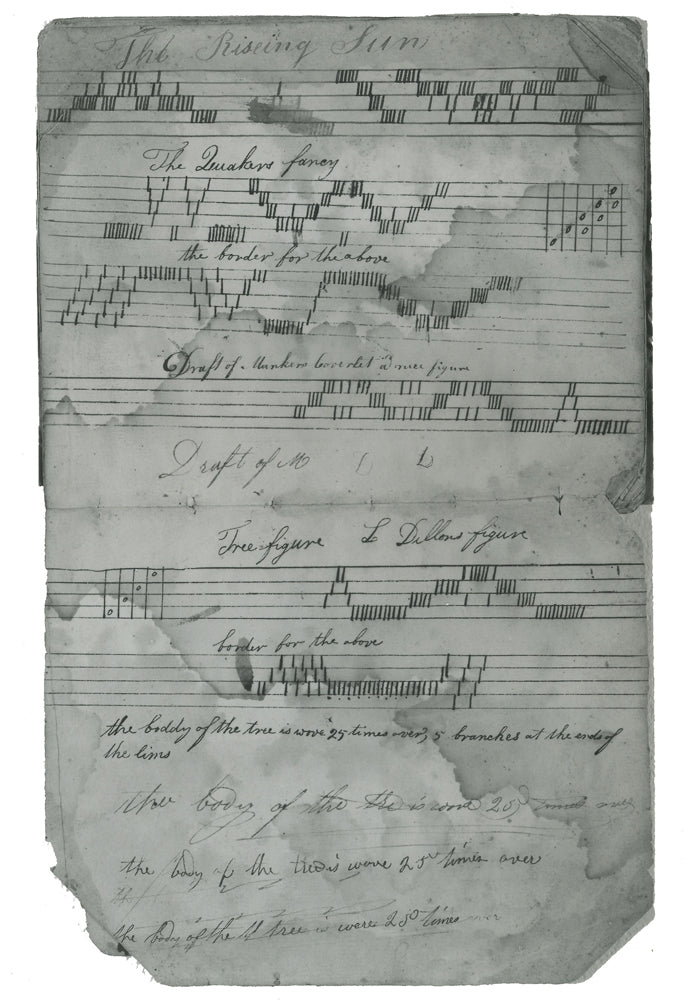 The Riseing Sun
The Quakers fancy
the border for the above
Draft of a coverlet a nice figure
Draft of M L
Tree figure L Dillons figure
border for the above
the boddy of the tree is wove 25 times over, 5 branches at the ends of
the lims
thee body of the tre is wove 25 times over
the body of the tree is wove 25 times over
the body of the tree is wove 250 times over